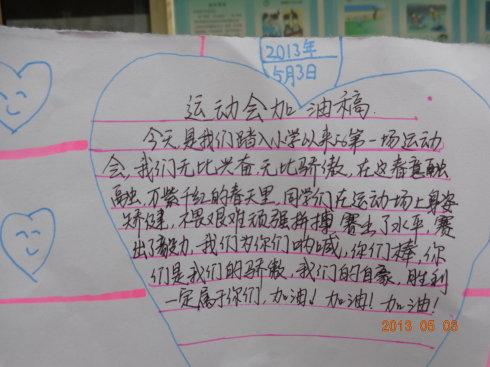 2013年
5月3日
运动会加油稿
今天是我们踏入小学以来的第一场运动
会,我们无比兴奋,无比骄傲,在这春意融
融,万紫千红的春天里,同学们在运动场上身姿
矫健,不畏艰难顽强拼搏,赛出了水平,赛
出了毅力,我们为你们呐喊,你们棒,你
们是我们的骄傲,我们的自豪,胜利
一定属于你们,加油!加油!加油!
2013 05 03